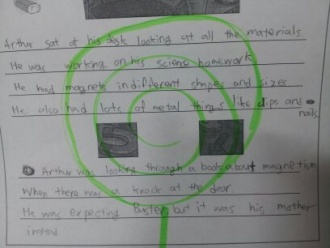 Arthur sat at his desk looking at all the materials
He was working on his science homework
He had magnets in different shapes and sizes
He also had lots of metal things like clips and nails
Arthur was looking through a book about magnetism
When there was a knock at the door.
He was expecting Buster, but it was his mother
instead